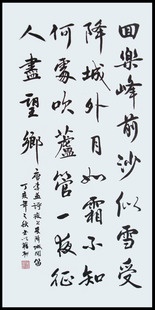 回樂峰前沙似雪受
降城外月如霜不知
何處吹蘆管一夜征
人盡望鄉
唐李益詩夜上受降城聞笛
丁亥年